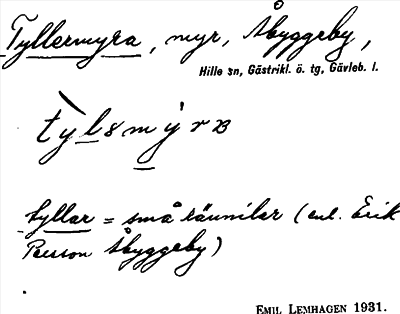 Tyllermyra, myr, Åbyggeby,
Hille sn, Gästrikl. ö. tg, Gävleb. l.
tyllar = små (enl. Erik
Person Åbyggeby)
EMIL LEMHAGEN 1931.